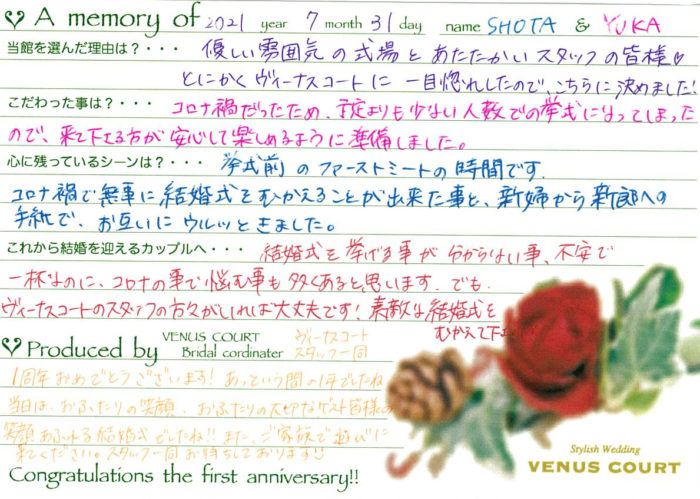 A memory of 2021 year 7 month 31 day name SHOTA & YUKA
当館を選んだ理由は？・・・ 優しい雰囲気の式場とあたたかいスタッフの皆様♡
とにかくヴィーナスコートに一目惚れしたので、こちらに決めました!
こだわった事は？・・・ コロナ禍だったため、予定よりも少ない人数での挙式になってしまった
ので、来て下さる方が安心して楽しめるように準備しました。
心に残っているシーンは？・・・ 挙式前のファーストミートの時間です.
コロナ禍で無事に結婚式をむかえることが出来た事と、新婦から新郎への
手紙で、お互いにウルッときました。
これから結婚を迎えるカップルへ・・・ 結婚式を挙げる事が分からない事、不安で
一杯なのに、コロナの事で悩む事も多くあると思います. でも.
ヴィーナスコートのスタッフの方々がいれば大丈夫です! 素敵な結婚式を
むかえて下さい
Produced by VENUS COURT Bridal cordinater ヴィーナスコート スタッフ一同
1周年おめでとうございます! あっという間の1年でしたね
当日は、おふたりの笑顔、おふたりの大切なゲスト皆様の
笑顔あふれる結婚式でしたね!! また、ご家族で遊びに
来てください。スタッフ一同お待ちしております!!
Congratulations the first anniversary!!
Stylish Wedding
VENUS COURT